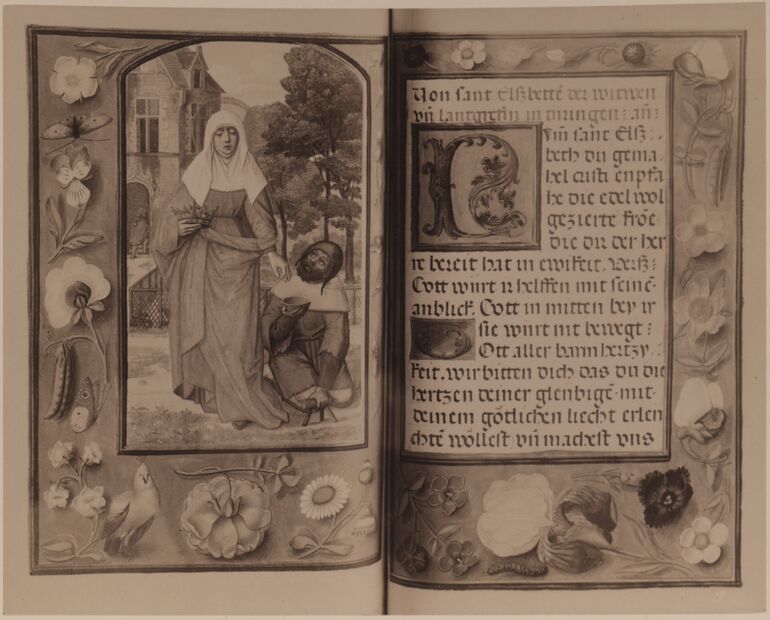 Von sant Elßbettē der witwen
vñ lantgrefin in düringen : añ :
vm̄ sant Elß :
beth du gema
hel cristi enpfa
he die edel wol
gezierte krōe
die dir der her
re bereit hat in ewikeit. Verß :
Gott würt ir helffen mit seinē
anblick. Gott in mitten bey ir
sie würt nit bewegt :
Ott aller barmhertzy
keit. wir bitten dich das du die
hertzen deiner glenbigē mit
deinem götlichen liecht erlen
chtē wöllest vñ machest vns